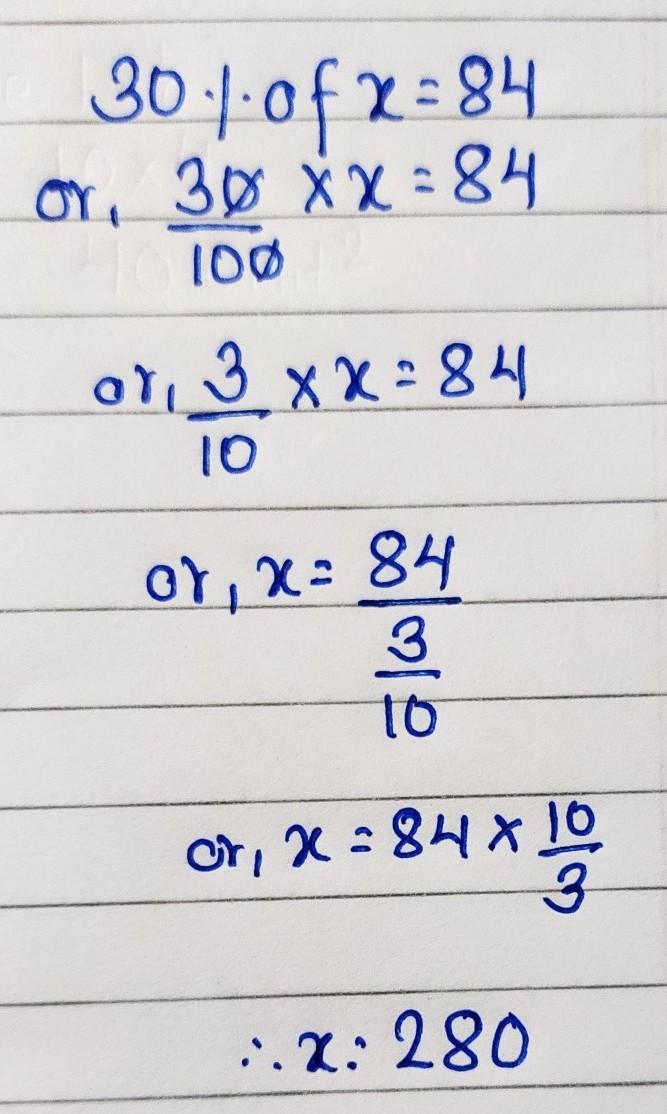 30 % of x = 84
or, 30/100 × x = 84
or, 3/10 × x = 84
or, x = 84/(3/10)
or, x = 84 × 10/3
∴ x : 280